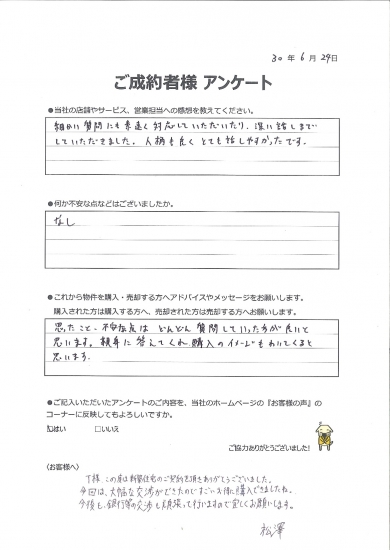 30年6月29日
ご成約者様 アンケート
●当社の店舗やサービス、営業担当への感想を教えてください。
細かい質問にも素速く対応していただいたり、深い話しまで
していただきました。人柄も良くとても話しやすかったです。
●何か不安な点などはございましたか。
なし
●これから物件を購入・売却する方へアドバイスやメッセージをお願いします。
購入された方は購入する方へ、売却された方は売却する方へお願いします。
思ったこと、不安な点は どんどん質問していった方が良いと
思います。親身に答えてくれ、購入のイメージもわいてくると
思います。
●ご記入いただいたアンケートのご内容を、当社のホームページの『お客様の声』の
コーナーに反映してもよろしいですか。
☑はい □いいえ
ご協力ありがとうございました!
〈お客様へ〉
T様 この度は新築住宅のご契約を頂きありがとうございました。
今回は、大幅な交渉ができたのですごいお得に購入できましたね。
今後も、銀行等の交渉も頑張って行いますので宜しくお願いします。
松澤